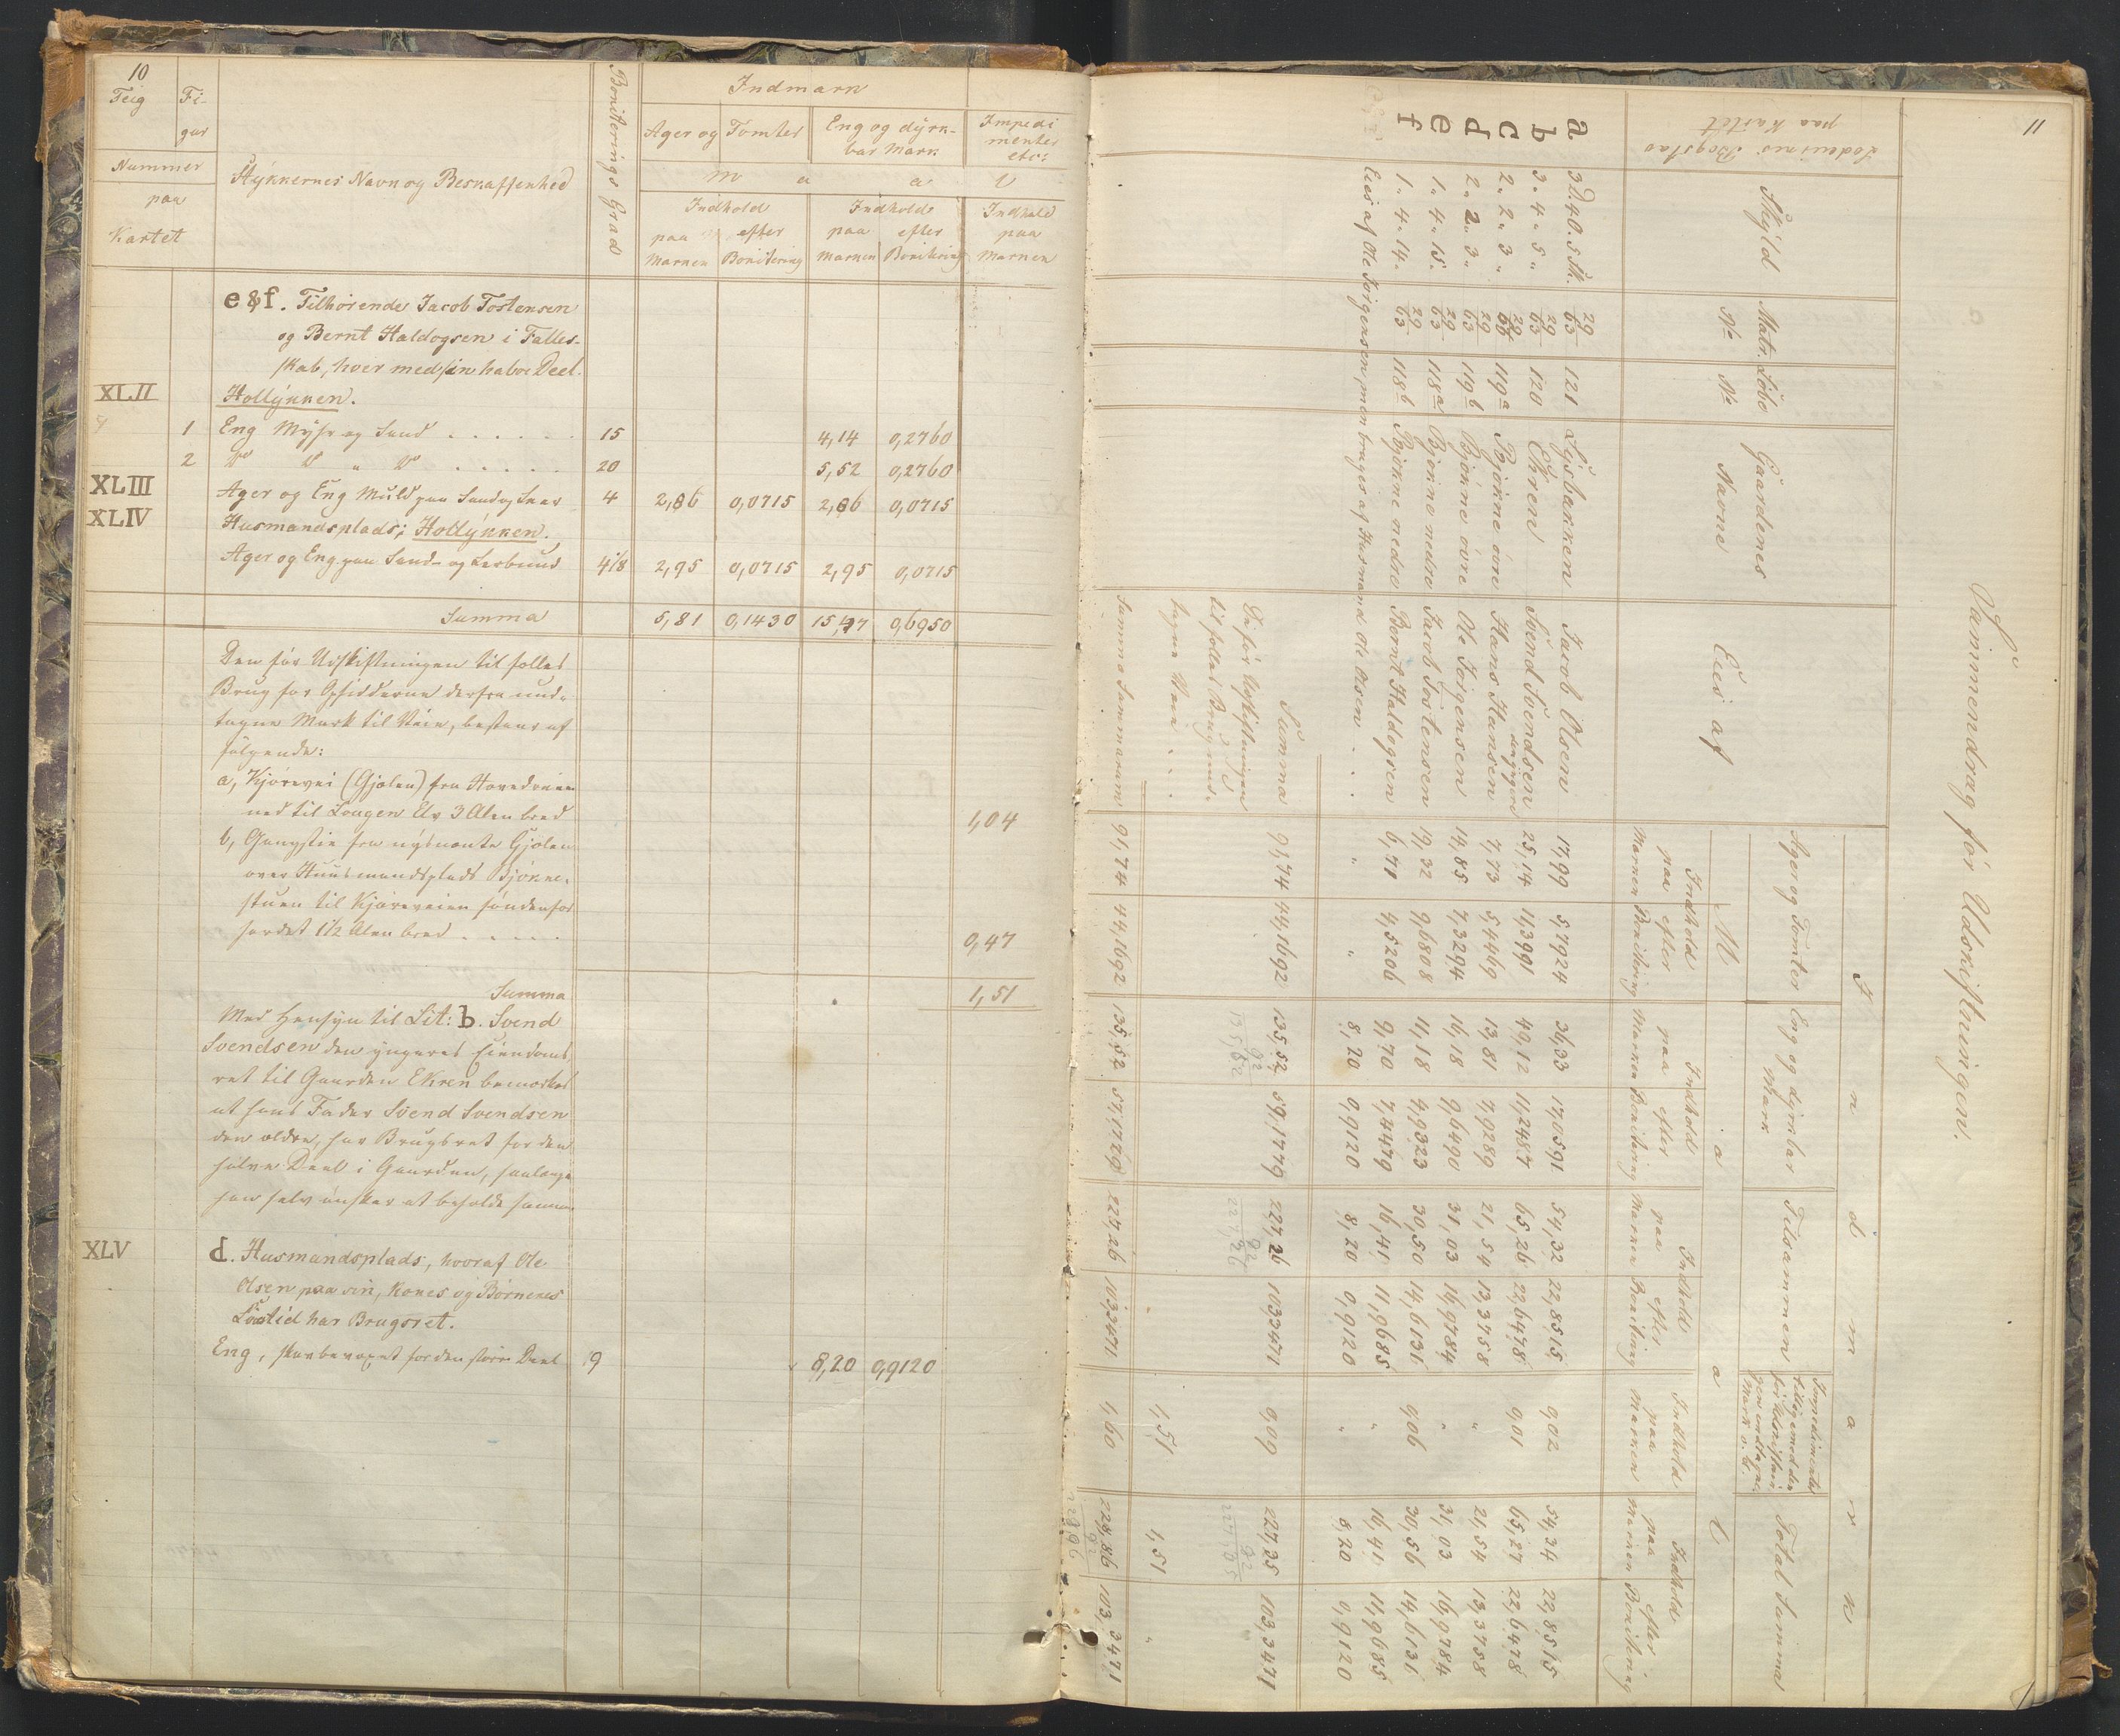 10
Teig Fi-
gur
Nummer
paa
Kartet
Stykkernes Navn og Beskaffenhed
Boniterings Grad
Indmark
Ager og Tomter Eng og dyrk-
bar Mark Impedi
menter
etc:
M a a l
Indhold Indhold Indhold
paa efter paa efter paa
Marken Bonitering Marken Bonitering Marken
e & f. Tilhørende Jacob Tostensen
og Bernt Haldogsen i Fælles-
skab, hver med sin halve Deel.
XLII Hollykken.
1 Eng Myhr og Sand . . . . . . 15 4,14 0,2760
2 Do Do " Do . . . . . 20 5,52 0,2760
XLIII Ager og Eng Muld paa Sand og Leer 4 2,86 0,0715 2,86 0,0715
XLIV Husmandsplads; Hollykken.
Ager og Eng paa Sand- og Leerbund 4 1/8 2,95 0,0715 2,95 0,0715
Summa 5,81 0,1430 15,47 0,6950
Den før Udskiftningen til fælles
Brug for Opsidderne derfra und-
tagne Mark til Veie, bestaar af
følgende:
a, Kjørevei (Gjolen) fra Hovedveien
ned til Lougen Elv 3 Alen bred 1,04
b, Gangstie fra nysnævnte Gjolen
over Huusmandsplads Bjønne-
stuen til Kjøreveien søndenfor
samt 1 1/2 Alen bred . . . . . 0,47
Summa 1,51
Med Hensyn til Lit: b. Svend
Svendsen den yngeres Eiendoms
ret til Gaarden Ekren bemærkes
at hans Fader Svend Svendsen
den ældre, har Brugsret for den
halve Deel i Gaarden, saalænge
han selv ønsker at beholde samme.
XLV d. Husmandsplads, hvoraf Ole
Olsen paa sin, Kones og Børnenes
Livstid har Brugsret.
Eng, skovbevoxet for den større Deel 9 8,20 0,9120
11
Sammendrag før Udskiftningen.
Lodeiernes Bogstav
paa Kartet
Skyld
Matr. No
Løbe No
Gaardenes
Navne
Eies af
I n d m a r k
Ager og Tomter
Eng og dyrkbar
Mark
Tilsammen
Impedimenter
tilligemed den
før Udskiftnin-
gen undtagne
Mark o. s.
Total Summa
M a a l
Indhold Indhold Indhold Indhold Indhold
paa efter paa efter paa efter paa paa efter
Marken Bonitering Marken Bonitering Marken Bonitering Marken Marken Bonitering
a 3 D. 40. 5 Sk. 29/63 121 Lysbakken Jacob Olsen 17,99 5,7924 36,33 17,0591 54,32 22,8515 0,02 54,34 22,8515
b 3 " 4 " 5 " 29/63 120 Ekren Svend Svendsen den yngere 25,14 11,3991 40,12 11,2487 65,26 22,6478 0,01 65,27 22,6478
c 2 " 2 " 3 " 119a Bjønne øvre Hans Hansen 7,73 5,4469 13,81 7,9289 21,54 13,3758 " 21,54 13,3758
d 2 " 2 " 3 " 29/63 119b Bjønne øvre Ole Jørgensen 14,85 7,3294 16,18 9,6490 31,03 16,9784 " 31,03 16,9784
e 1 " 4 " 15 " 29/63 118a Bjønne nedre Jacob Tostensen 19,32 9,6808 11,18 4,9323 30,50 14,6131 0,06 30,56 14,6131
f 1 " 4 " 14 " 29/63 118b Bjønne nedre Bernt Haldogsen 6,71 4,5206 9,70 7,4479 16,41 11,9685 " 16,41 11,9685
Eies af Ole Jørgensen, men bruges af Husmand Ole Olsen . . " " 8,20 0,9120 8,20 0,9120 " 8,20 0,9120
Summa 91,74 44,1692 135,52 59,1779 227,26 103,3471 0,09 227,35 103,3471
De før Udskiftningen
til fælles Brug und-
tagne Veie . . . 1,51 1,51 "
Summa Summarum 91,74 44,1692 135,52 59,1779 227,26 103,3471 1,60 228,86 103,3471